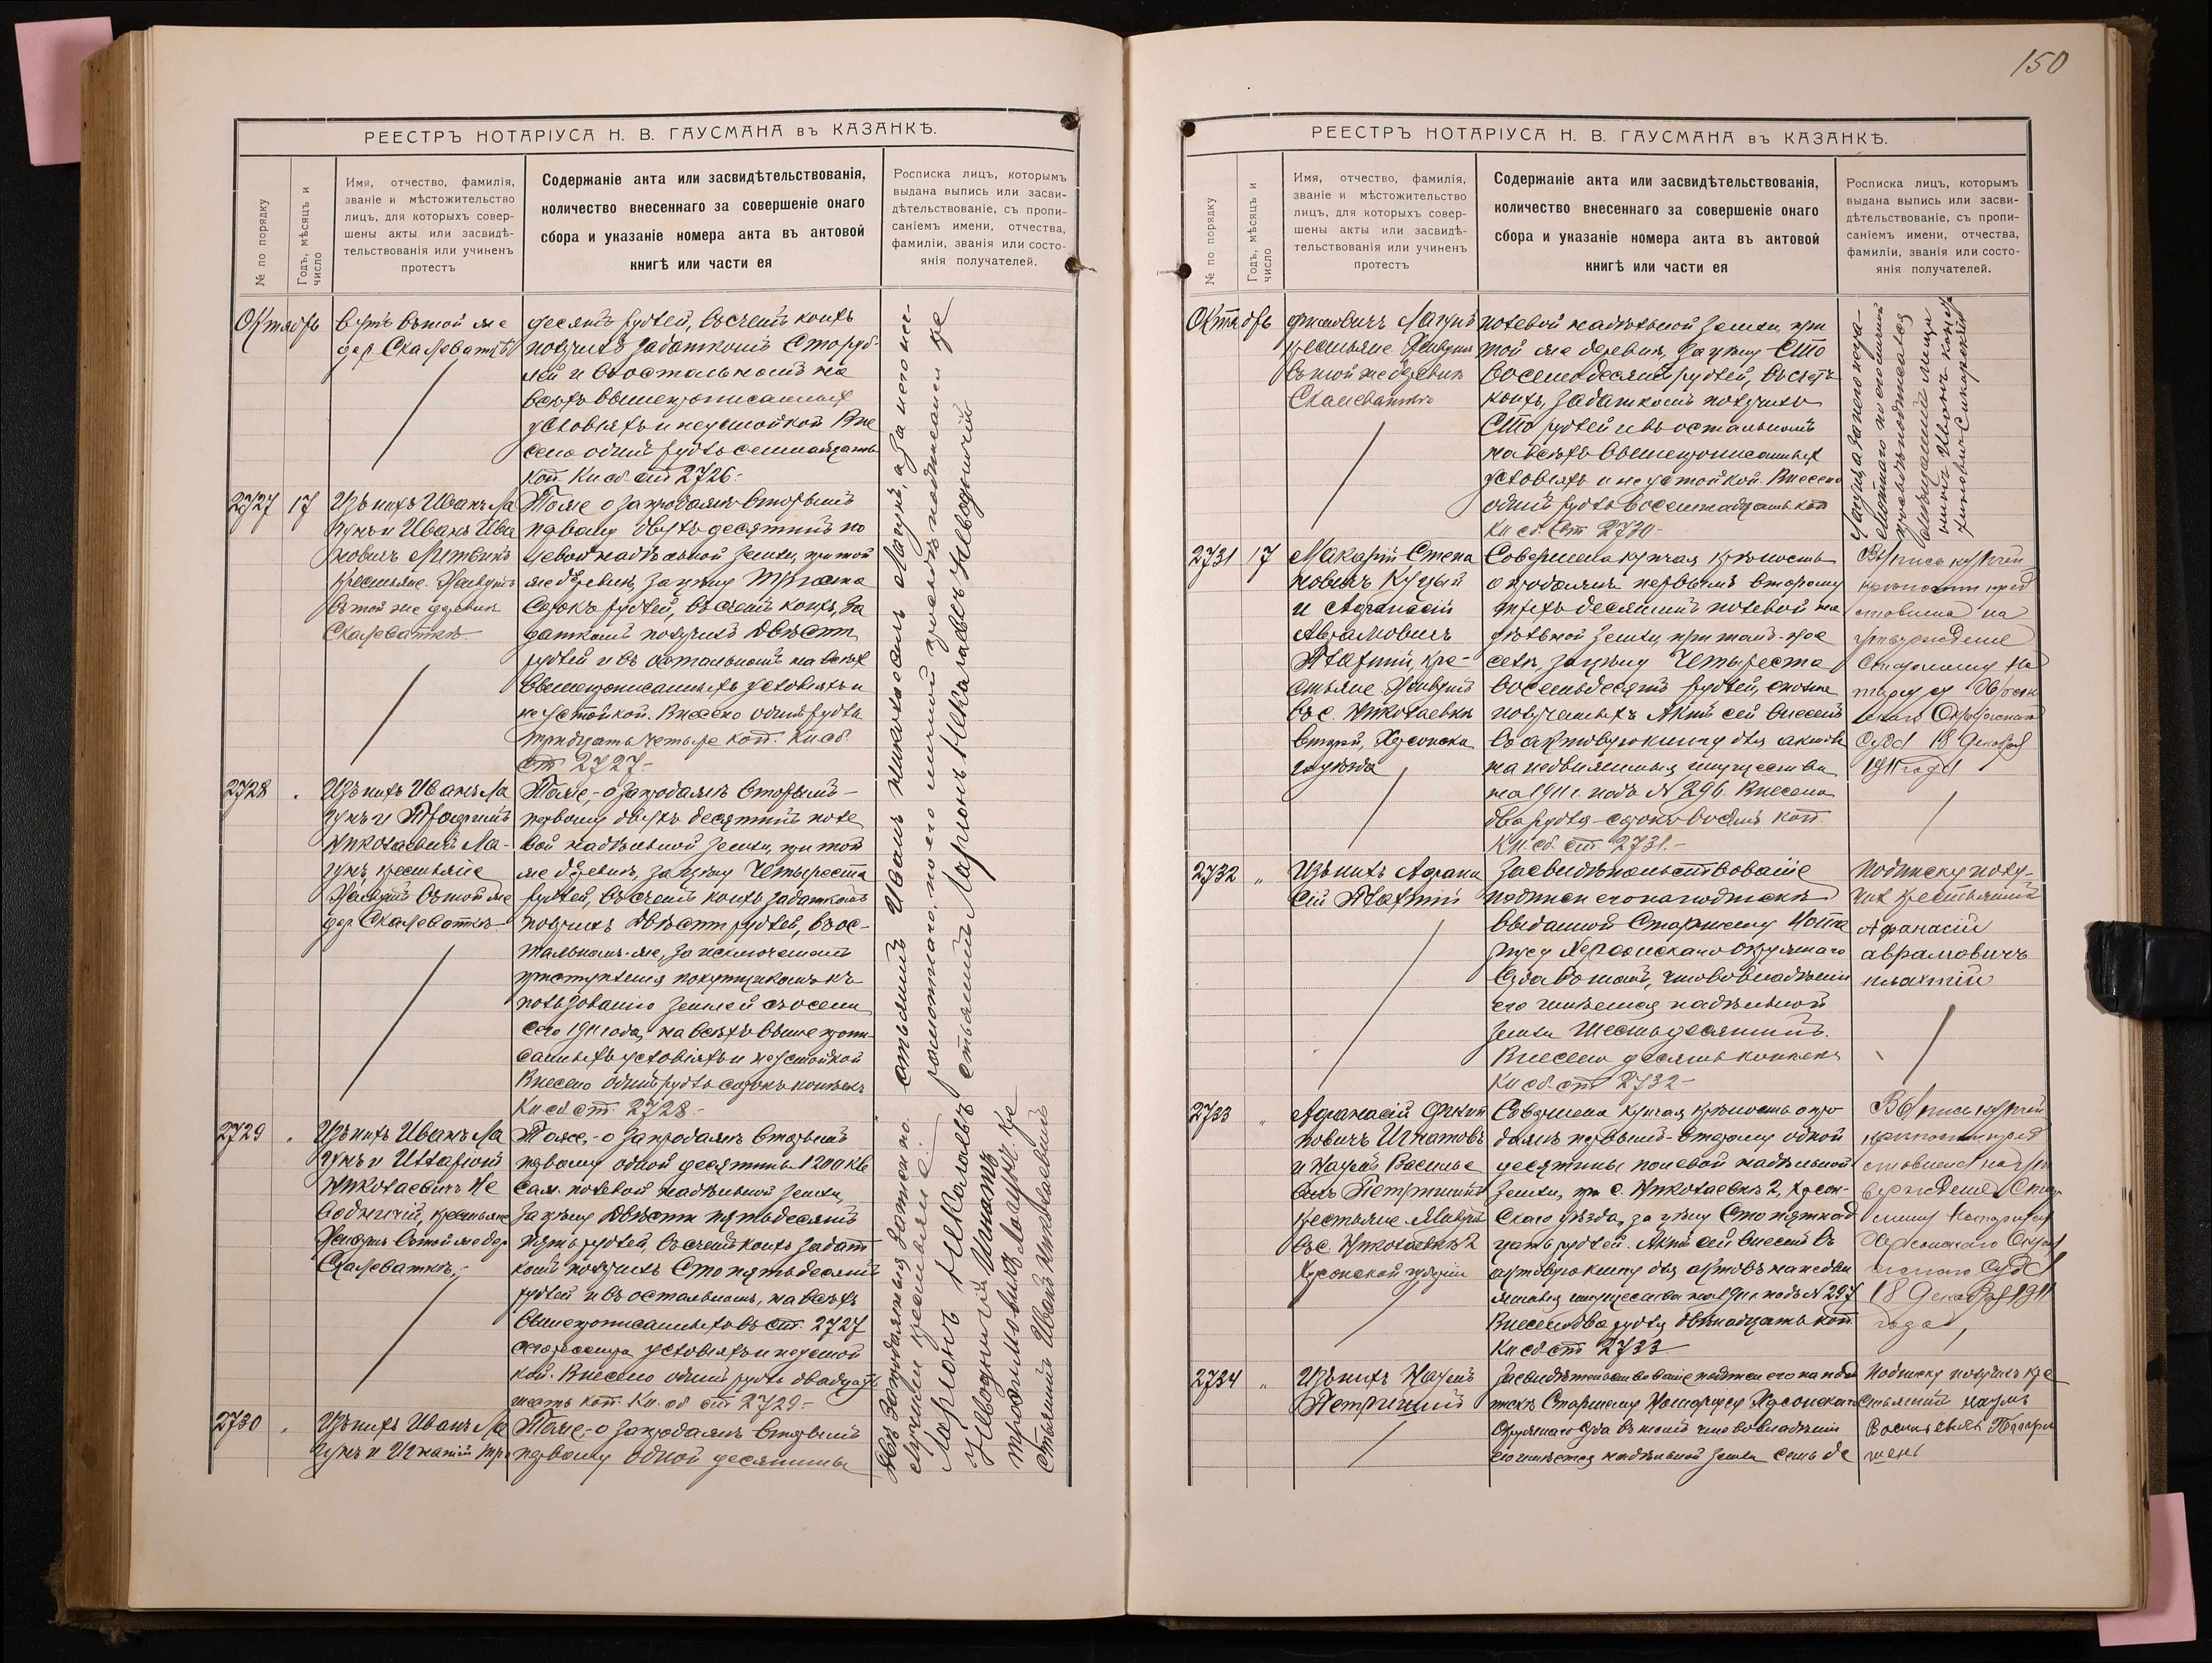 150
РЕЕСТРЪ НОТАРІУСА Н. В. ГАУСМАНА въ КАЗАНКѢ.
№ по порядку
Годъ, мѣсяцъ и
число
Имя, отчество, фамилія,
званіе и мѣстожительство
лицъ, для которыхъ совер-
шены акты или засвидѣ-
тельствованія или учиненъ
протестъ
Содержаніе акта или засвидѣтельствованія,
количество внесеннаго за совершеніе онаго
сбора и указаніе номера акта въ актовой
книгѣ или части ея
Росписка лицъ, которымъ
выдана выпись или засви-
дѣтельствованіе, съ пропи-
саніемъ имени, отчества,
фамиліи, званія или состо-
янія получателей.
Октябрь
вутъ въ той же
дер. Скалеваткѣ
десятъ рублей, въ счетъ коихъ
получилъ задаткомъ сто руб-
лей и въ остальномъ на
всѣхъ вышепрописанныхъ
условіяхъ и неустойкой Вне
сено одинъ рубль семнадцать
коп. Кн. сб. ст 2726.-
2727
17
Изъ нихъ Иванъ Ла
гунъ и Иванъ Ива
новичъ Литвинъ
крестьяне. Живутъ
въ той же деревнѣ
Скалеваткѣ.
Тоже о запродажѣ вторымъ
первому двухъ десятинъ по
левой надѣльной земли, при той
же деревнѣ, за цѣну триста
сорокъ рублей, въ счетъ коихъ, за
даткомъ получилъ двѣсти
рублей и въ остальномъ на всѣхъ
вышепрописанныхъ условіяхъ и
неустойкой. Внесено одинъ рубль
тридцать четыре коп. Кн. сб.
ст 2727.-
2728
Изъ нихъ Иванъ Ла
гунъ и Трофимъ
Николаевичъ Ла-
гунъ, крестьяне
Живутъ въ той же
дер. Скалеваткѣ
Тоже,- о запродажѣ вторымъ-
первому двухъ десятинъ поле
вой надѣльной земли, при той
же деревнѣ, за цѣну четыреста
рублей, въ счетъ коихъ задаткомъ
получилъ двѣсти рублей, въ ос-
тальномъ-же, за исключеніемъ
приступленія покупщикомъ къ
пользованію землей съ осени
сего 1911 года, на всѣхъ выше пропи-
санныхъ условіяхъ и неустойкой
Внесено одинъ рубль сорокъ копѣекъ
Кн сб ст. 2728.-
2729
Изъ нихъ Иванъ Ла
гунъ и Илларіонъ
Николаевичъ Не
водничій, крестьяне
Живутъ въ той же дер
Скалеваткѣ,-
Тоже,- о запродажѣ вторымъ
первому одной десятины 1200 кв
саж. полевой надѣльной земли,
за цѣну двѣсти пятьдесятъ
пять рублей, въ счетъ коихъ задат
комъ получилъ сто пятьдесятъ
рублей и въ остальномъ, на всѣхъ
вышепрописанныхъ въ ст. 2727
сего реестра условіяхъ и неустой
кой. Внесено одинъ рубль двадцать
шесть коп. Кн. сб ст 2729-
2730
Изъ нихъ Иванъ Ла
гунъ и Игнатій Тро
Тоже,- о запродажѣ вторымъ
первому одной десятины
получили крестьяне:
Ларіонъ Николаевъ
Неводничій Игнатъ
Трофимовичъ Лагунъ. Кре
стьянинъ Иванъ Николаевичъ
стьянинъ Иванъ Николаевъ Лагунъ, а за него не-
грамотнаго, по его личной просьбѣ подписался кре
стьянинъ Ларіонъ Николаевъ Неводничій
РЕЕСТРЪ НОТАРІУСА Н. В. ГАУСМАНА въ КАЗАНКѢ.
№ по порядку
Годъ, мѣсяцъ и
число
Имя, отчество, фамилія,
званіе и мѣстожительство
лицъ, для которыхъ совер-
шены акты или засвидѣ-
тельствованія или учиненъ
протестъ
Содержаніе акта или засвидѣтельствованія,
количество внесеннаго за совершеніе онаго
сбора и указаніе номера акта въ актовой
книгѣ или части ея
Росписка лицъ, которымъ
выдана выпись или засви-
дѣтельствованіе, съ пропи-
саніемъ имени, отчества,
фамиліи, званія или состо-
янія получателей.
Октябрь
фимовичъ Лагунъ
крестьяне. Живутъ
въ той же деревнѣ
Скалеваткѣ
полевой надѣльной земли, при
той же деревнѣ, за цѣну сто
восемьдесятъ рублей, въ счетъ
коихъ, задаткомъ получилъ
сто рублей и въ остальномъ
на всѣхъ вышепрописанныхъ
условіяхъ и неустойкой. Внесено
одинъ рубль восемнадцать коп
Кн сб. ст 2730-
Лагунъ, а за него негра-
мотнаго по его личной
просьбѣ подписался
2731
17
Макарій Степа
новичъ Куцый
и Афанасій
Аврамовичъ
Плахтій, кре-
стьяне. Живутъ
въ с. Николаевкѣ
второй, Херсонска
го уѣзда
Совершена купчая крѣпость
о продажѣ первымъ второму
трехъ десятинъ полевой на
дѣльной земли, при томъ-же
селѣ, за цѣну четыреста
восемьдесятъ рублей, сполна
полученныхъ Актъ сей внесенъ
въ актовую книгу для актовъ
на недвижимыя имущества
на 1911 г. подъ № 296. Внесено
два рубля сорокъ восемь коп.
Кн. сб. ст. 2731.-
Выпись купчей
крѣпости пред
ставлена на
утвержденіе
Старшему Но
таріусу Херсон
скаго Окружнаго
Суда 18 Декабря
1911 года
2732
"
Изъ нихъ Афана
сій Плахтій
Засвидѣтельствованіе
подписи его на подпискѣ
выданной Старшему Нота
ріусу Херсонскаго Окружнаго
Суда въ томъ, что во владѣніи
его имѣется надѣльной
земли шесть десятинъ.
Внесено десять копѣекъ
Кн сб. ст 2732-
Подписку полу-
чилъ крестьянинъ
Афанасій
Аврамовичъ
плахтій
2733
"
Афанасій Фили
повичъ Игнатовъ
и Наумъ Василье
вичъ Петришинъ
крестьяне. Живутъ
въ с. Николаевкѣ 2
Херсонской губерніи
Совершена купчая крѣпость о про
дажѣ первымъ-второму одной
десятины полевой надѣльной
земли, при с. Николаевкѣ 2, Херсон-
скаго уѣзда, за цѣну сто пятнад
цать рублей. Актъ сей внесенъ въ
актовую книгу для актовъ на недви
жимыя имущества на 1911 г. подъ № 297
Внесено два рубля двѣнадцать коп.
Кн сб ст 2733
Выпись купчей
крѣпости пред
ставлена на ут
вержденіе Стар
шему Нотаріусу
Херсонскаго Окру
жнаго Суда
18 Декабря 1911
года
2734
"
Изъ нихъ Наумъ
Петришинъ
Засвидѣтельствованіе подписи его на под
пискѣ Старшему Нотаріусу Херсонскаго
Окружнаго Суда въ томъ что во владѣніи
его имѣется надѣльной земли семь де
Подписку получилъ кре
стьянинъ Наумъ
Васильевичъ